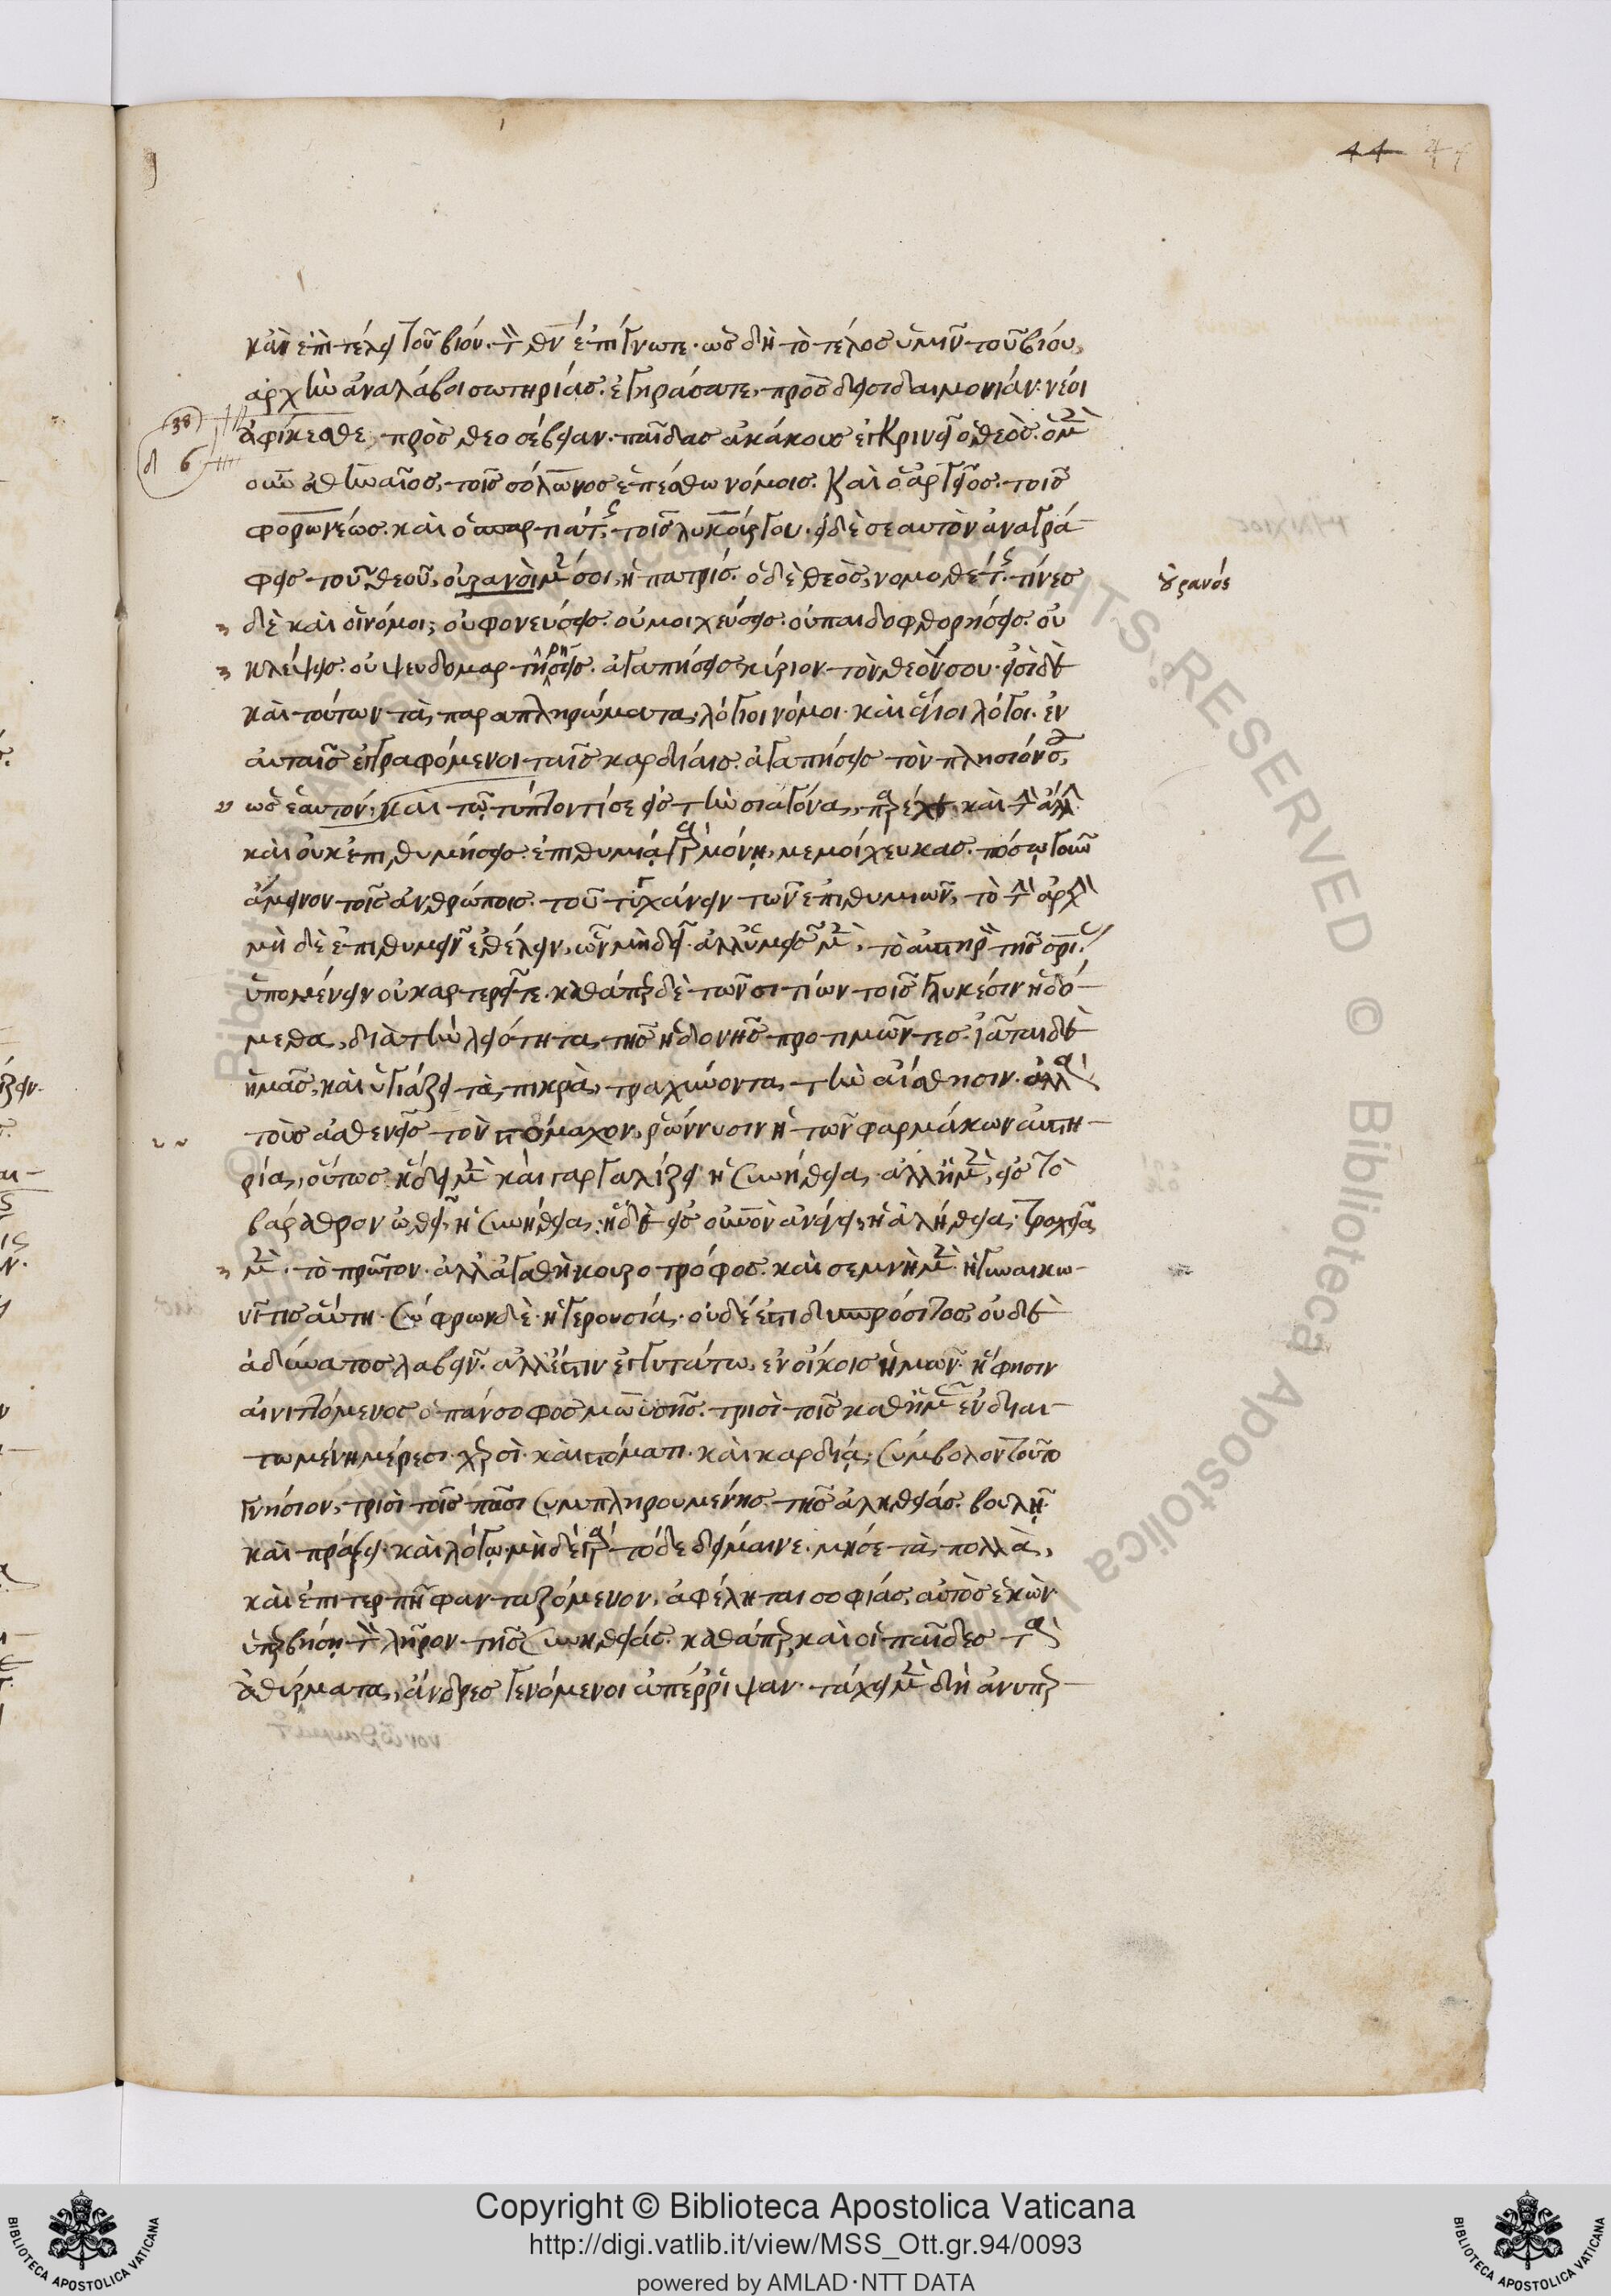 44
κἂν ἐπὶ τέλει τοῦ βίου. τὸν θν ἐπίγνωτε. ὡς δὴ τὸ τέλος ὑμῖν τοῦ βίου,
ἀρχὴν ἀναλάβοι σωτηρίας. ἐγηράσατε, πρὸς δεισιδαιμονίαν. νέοι
ἀφίκεσθε, πρὸς θεοσέβειαν. παῖδας ἀκάκους ἐγκρινεῖ ὁ θεός. ὁ μὲν
οὖν ἀθηναῖος, τοῖς σόλωνος ἑπέσθω νόμοις. καὶ ὁ ἀργεῖος. τοῖς
φορωνέως. καὶ ὁ σπαρτιάτης τοῖς λυκούργου. εἰ δὲ σεαυτὸν ἀναγρά-
φεις τοῦ θεοῦ, οὐρανὸς μὲν σοι, ἡ πατρίς. ὁ δὲ θεὸς, νομοθέτης. τίνες
οὐρανός
δὲ καὶ οἱ νόμοι; οὐ φονεύσεις. οὐ μοιχεύσεις. οὐ παιδοφθορήσεις. οὐ
κλέψεις. οὐ ψευδομαρτυρήσεις. ἀγαπήσεις κύριον τὸν θεόν σου. εἰσὶ δὲ
καὶ τούτων τὰ παραπληρώματα, λόγιοι νόμοι. καὶ ἅγιοι λόγοι. ἐν
αὐταῖς ἐγγραφόμενοι ταῖς καρδίαις. ἀγαπήσεις τὸν πλησίον σου,
ὡς ἑαυτόν. καὶ τῷ τύπτοντί σε εἰς τὴν σιαγόνα, πάρεχε καὶ τὴν ἄλλην.
καὶ οὐκ ἐπιθυμήσεις. ἐπιθυμίᾳ γὰρ μόνῃ, μεμοίχευκας. πόσῳ γοῦν
ἄμεινον τοῖς ἀνθρώποις. τοῦ τυγχάνειν τῶν ἐπιθυμιῶν, τὸ τὴν ἀρχὴν
μὴ δὲ ἐπιθυμεῖν ἐθέλειν, ὧν μὴ δεῖ. ἀλλ' ὑμεῖς μὲν, τὸ αὐστηρὸν τῆς σωτηρίας
ὑπομένειν οὐ καρτερεῖτε. καθάπερ δὲ τῶν σιτίων τοῖς γλυκέσιν ἡδό-
μεθα, διὰ τὴν λειότητα τῆς ἡδονῆς προτιμῶντες. ἰᾶται δὲ
ἡμᾶς, καὶ ὑγιάζει τὰ πικρὰ, τραχύνοντα τὴν αἴσθησιν. ἀλλὰ
τοὺς ἀσθενεῖς τὸν στόμαχον, ῥώννυσιν ἡ τῶν φαρμάκων αὐστη-
ρία, οὕτως ἥδει μὲν καὶ γαργαλίζει ἡ συνήθεια. ἀλλ' ἣ μὲν, εἰς τὸ
βάραθρον ὠθεῖ, ἡ συνήθεια. ἣ δὲ εἰς οὐρανὸν ἀνάγει, ἡ ἀλήθεια. τραχεῖα
μὲν. τὸ πρῶτον. ἀλλ' ἀγαθὴ κουροτρόφος. καὶ σεμνὴ μὲν ἡ γυναικω-
νῖτις αὕτη. σώφρων δὲ ἡ γερουσία. οὐδέ ἐστι δυσπρόσιτος, οὐδὲ
ἀδύνατος λαβεῖν. ἀλλ' ἔστιν ἐγγυτάτω, ἐν οἴκοις ἡμῶν. ᾗ φησιν
αἰνιττόμενος ὁ πάνσοφος μωϋσῆς. τρισὶ τοῖς καθ' ἡμᾶς ἐνδιαι-
τωμένη μέρεσι. χερσὶ. καὶ στόματι. καὶ καρδίᾳ. σύμβολον τοῦτο
γνήσιον, τρισὶ τοῖς πᾶσι συμπληρουμένης τῆς ἀληθείας. βουλῇ.
καὶ πράξει. καὶ λόγῳ. μὴ δὲ γὰρ τόδε δείμαινε. μή σε τὰ πολλὰ,
καὶ ἐπιτερπῆ φανταζόμενον, ἀφέληται σοφίας, αὐτὸς ἑκὼν
ὑπερβήσῃ τὸν λῆρον τῆς συνηθείας. καθάπερ καὶ οἱ παῖδες τὰ
ἀθύρματα, ἄνδρες γενόμενοι ἀπέρριψαν. τάχει μὲν δὴ ἀνυπερ-